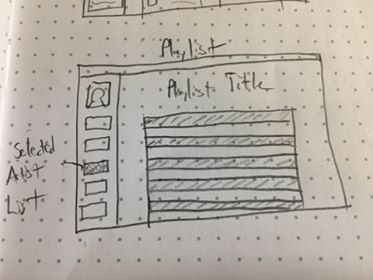 Playlist
Playlist Title
Selected
Artist
List